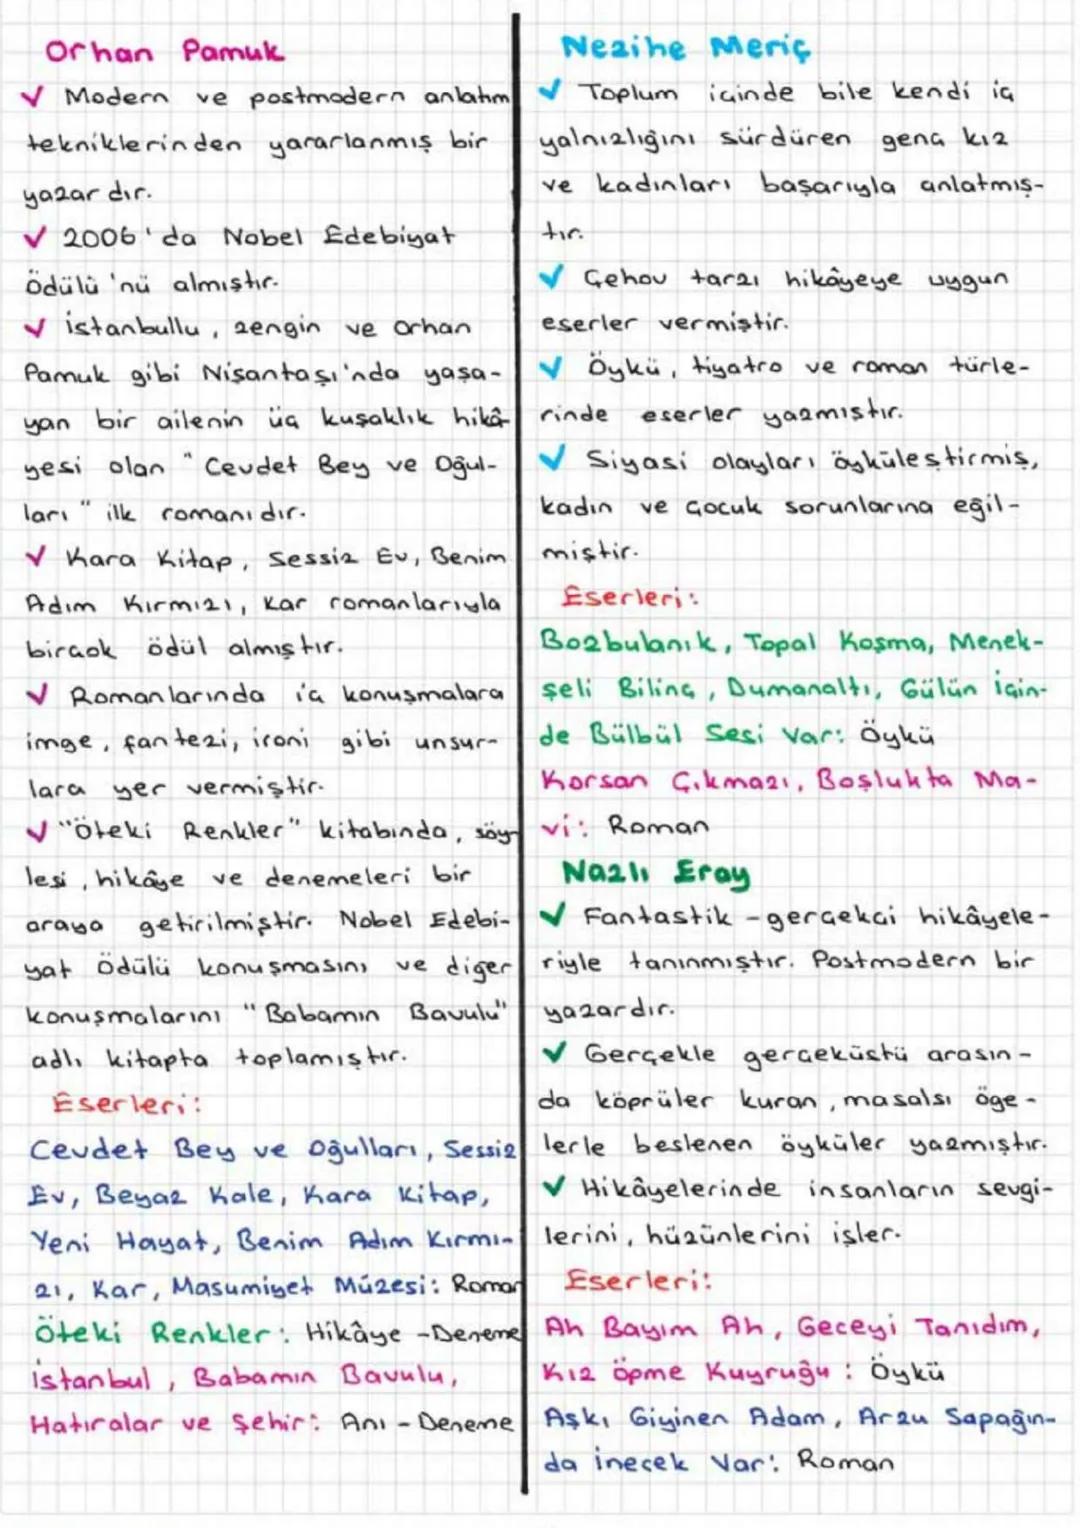 Orhan Pamuk
✓ Modern ve postmodern anlatım
tekniklerinden yararlanmış bir
yazardır.
✓ 2006'da Nobel Edebiyat
Ödülü'nü almıştır.
✓ İstanbullu, zengin ve Orhan
Pamuk gibi Nişantaşı'nda yaşa-
yan bir ailenin üç kuşaklık hikâ-
yesi olan "Cevdet Bey ve Oğul-
ları" ilk romanıdır.
✓ Kara Kitap, Sessiz Ev, Benim
Adım Kırmızı, Kar romanlarıyla
birçok ödül almıştır.
✓ Romanlarında iç konuşmalara
imge, fantezi, ironi gibi unsur-
lara yer vermiştir.
✓ "Öteki Renkler" kitabında, söy-
leşi, hikâye ve denemeleri bir
araya getirilmiştir. Nobel Edebi-
yat Ödülü konuşmasını ve diğer
konuşmalarını "Babamın Bavulu"
adlı kitapta toplamıştır.
Eserleri:
Cevdet Bey ve Oğulları, Sessiz
Ev, Beyaz Kale, Kara Kitap,
Yeni Hayat, Benim Adım Kırmı-
zı, Kar, Masumiyet Müzesi: Roman
Öteki Renkler: Hikâye - Deneme
İstanbul, Babamın Bavulu,
Hatıralar ve Şehir: Anı - Deneme
Nezihe Meriç
✓ Toplum içinde bile kendi iç
yalnızlığını sürdüren genç kız
ve kadınları başarıyla anlatmış-
tır.
✓ Çehov tarzı hikâyeye uygun
eserler vermiştir.
✓ Öykü, tiyatro ve roman türle-
rinde eserler yazmıştır.
✓ Siyasi olayları öyküleştirmiş,
kadın ve çocuk sorunlarına eğil-
miştir.
Eserleri:
Bozbulanık, Topal Koşma, Menek-
şeli Bilinç, Dumanaltı, Gülün İçin-
de Bülbül Sesi Var: Öykü
Korsan Çıkmazı, Boşlukta Ma-
vi: Roman
Nazlı Eray
✓ Fantastik - gerçekçi hikâyele-
riyle tanınmıştır. Postmodern bir
yazardır.
✓ Gerçekle gerçeküstü arasın-
da köprüler kuran, masalsı öge-
lerle beslenen öyküler yazmıştır.
✓ Hikâyelerinde insanların sevgi-
lerini, hüzünlerini işler.
Eserleri:
Ah Bayım Ah, Geceyi Tanıdım,
Kız Öpme Kuyruğu: Öykü
Aşkı Giyinen Adam, Arzu Sapağın-
da İnecek Var: Roman